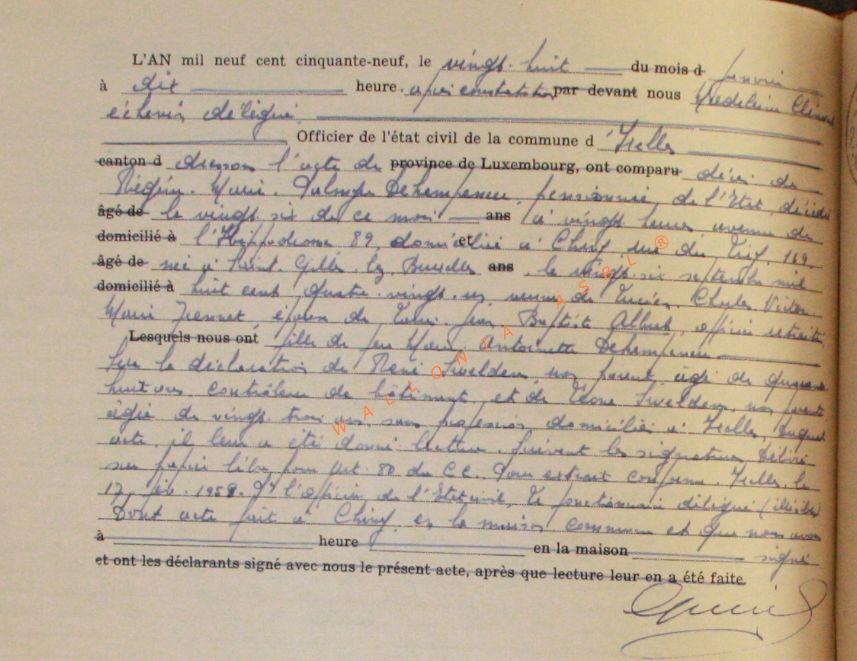 L'AN mil neuf cent cinquante-neuf, le vingt huit du mois d janvier
à dix heure après constatation par devant nous Madeleine
échevin délégué
Officier de l'état civil de la commune d'Ixelles
canton d dressons l'acte de province de Luxembourg, ont comparu décès de
Régina Marie Dehempenne, pensionnée de l'Etat, décédée
âgé de le vingt six de ce mois ans à vingt heures, avenue de
domicilié à l'Hippodrome 89, domiciliée et à Chiny rue du 169.
âgé de née à Saint Gilles lz Bruxelles ans le vingt six septembre mil
domicilié à huit cent quatre vingt un veuve de Lucien Charles Victor
Marie épouse de Jean Baptiste officier retraité
Lesquels nous ont fille de feu Marie Antoinette Dehempenne
Sur la déclaration de René Sweldens non parent âgé de quarante
huit ans contrôleur de bâtiment, et de Léone Sweldens, non parente
âgée de vingt trois ans sans profession, domiciliés à Ixelles,
acte il leur a été donné lecture. Suivent les signatures. Délivré
sur papier libre pour art. 80 du C.C. Pour extrait conforme. Ixelles le
1959. l'officier de l'Etat civil, le fonctionnaire délégué (illisible)
Dont acte fait à Chiny en la maison commune et que nous avons
à heure en la maison signé
et ont les déclarants signé avec nous le présent acte, après que lecture leur en a été faite
WALLONIA ASBL ®